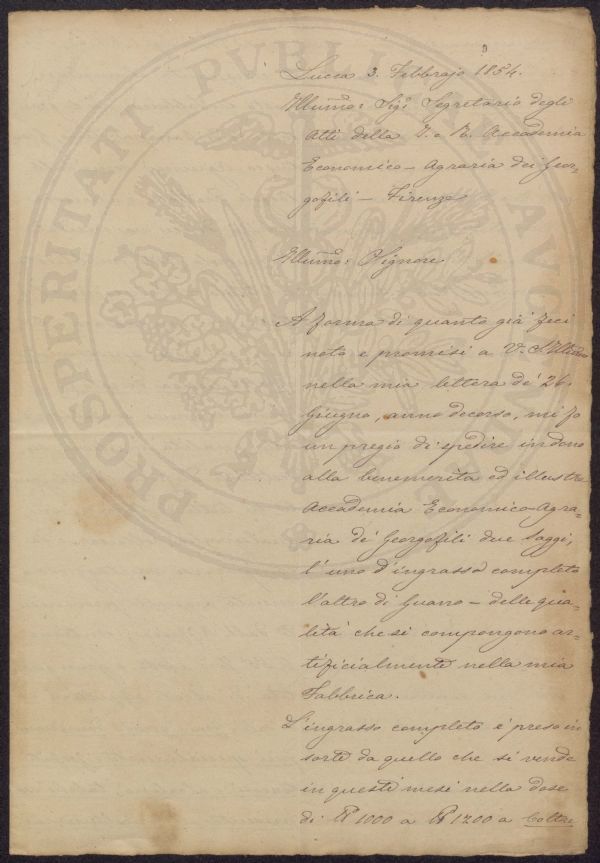 Lucca 3. Febbrajo 1854.
Illumo: Sigr. Segretario degli
Atti della I. e R. Accademia
Economico-Agraria dei Geor-
gofili - Firenze
Illumo: Signore
A forma di quanto già feci
noto e promisi a V. S. Illma
nella mia lettera de' 26.
Giugno, anno decorso, mi fo
un pregio di spedire in dono
alla benemerita ed illustre
Accademia Economico-Agra-
ria de' Georgofili due saggi,
l'uno d'ingrasso completo
l'altro di Guano - delle qua-
lità che si compongono ar-
tificialmente nella mia
Fabbrica.
L'ingrasso completo è preso in
sorte da quello che si vende
in questi mesi nella dose
di ℔ 1000 a ℔ 1200 a Coltre
PROSPERITATI PVBLICAE AVGENDAE